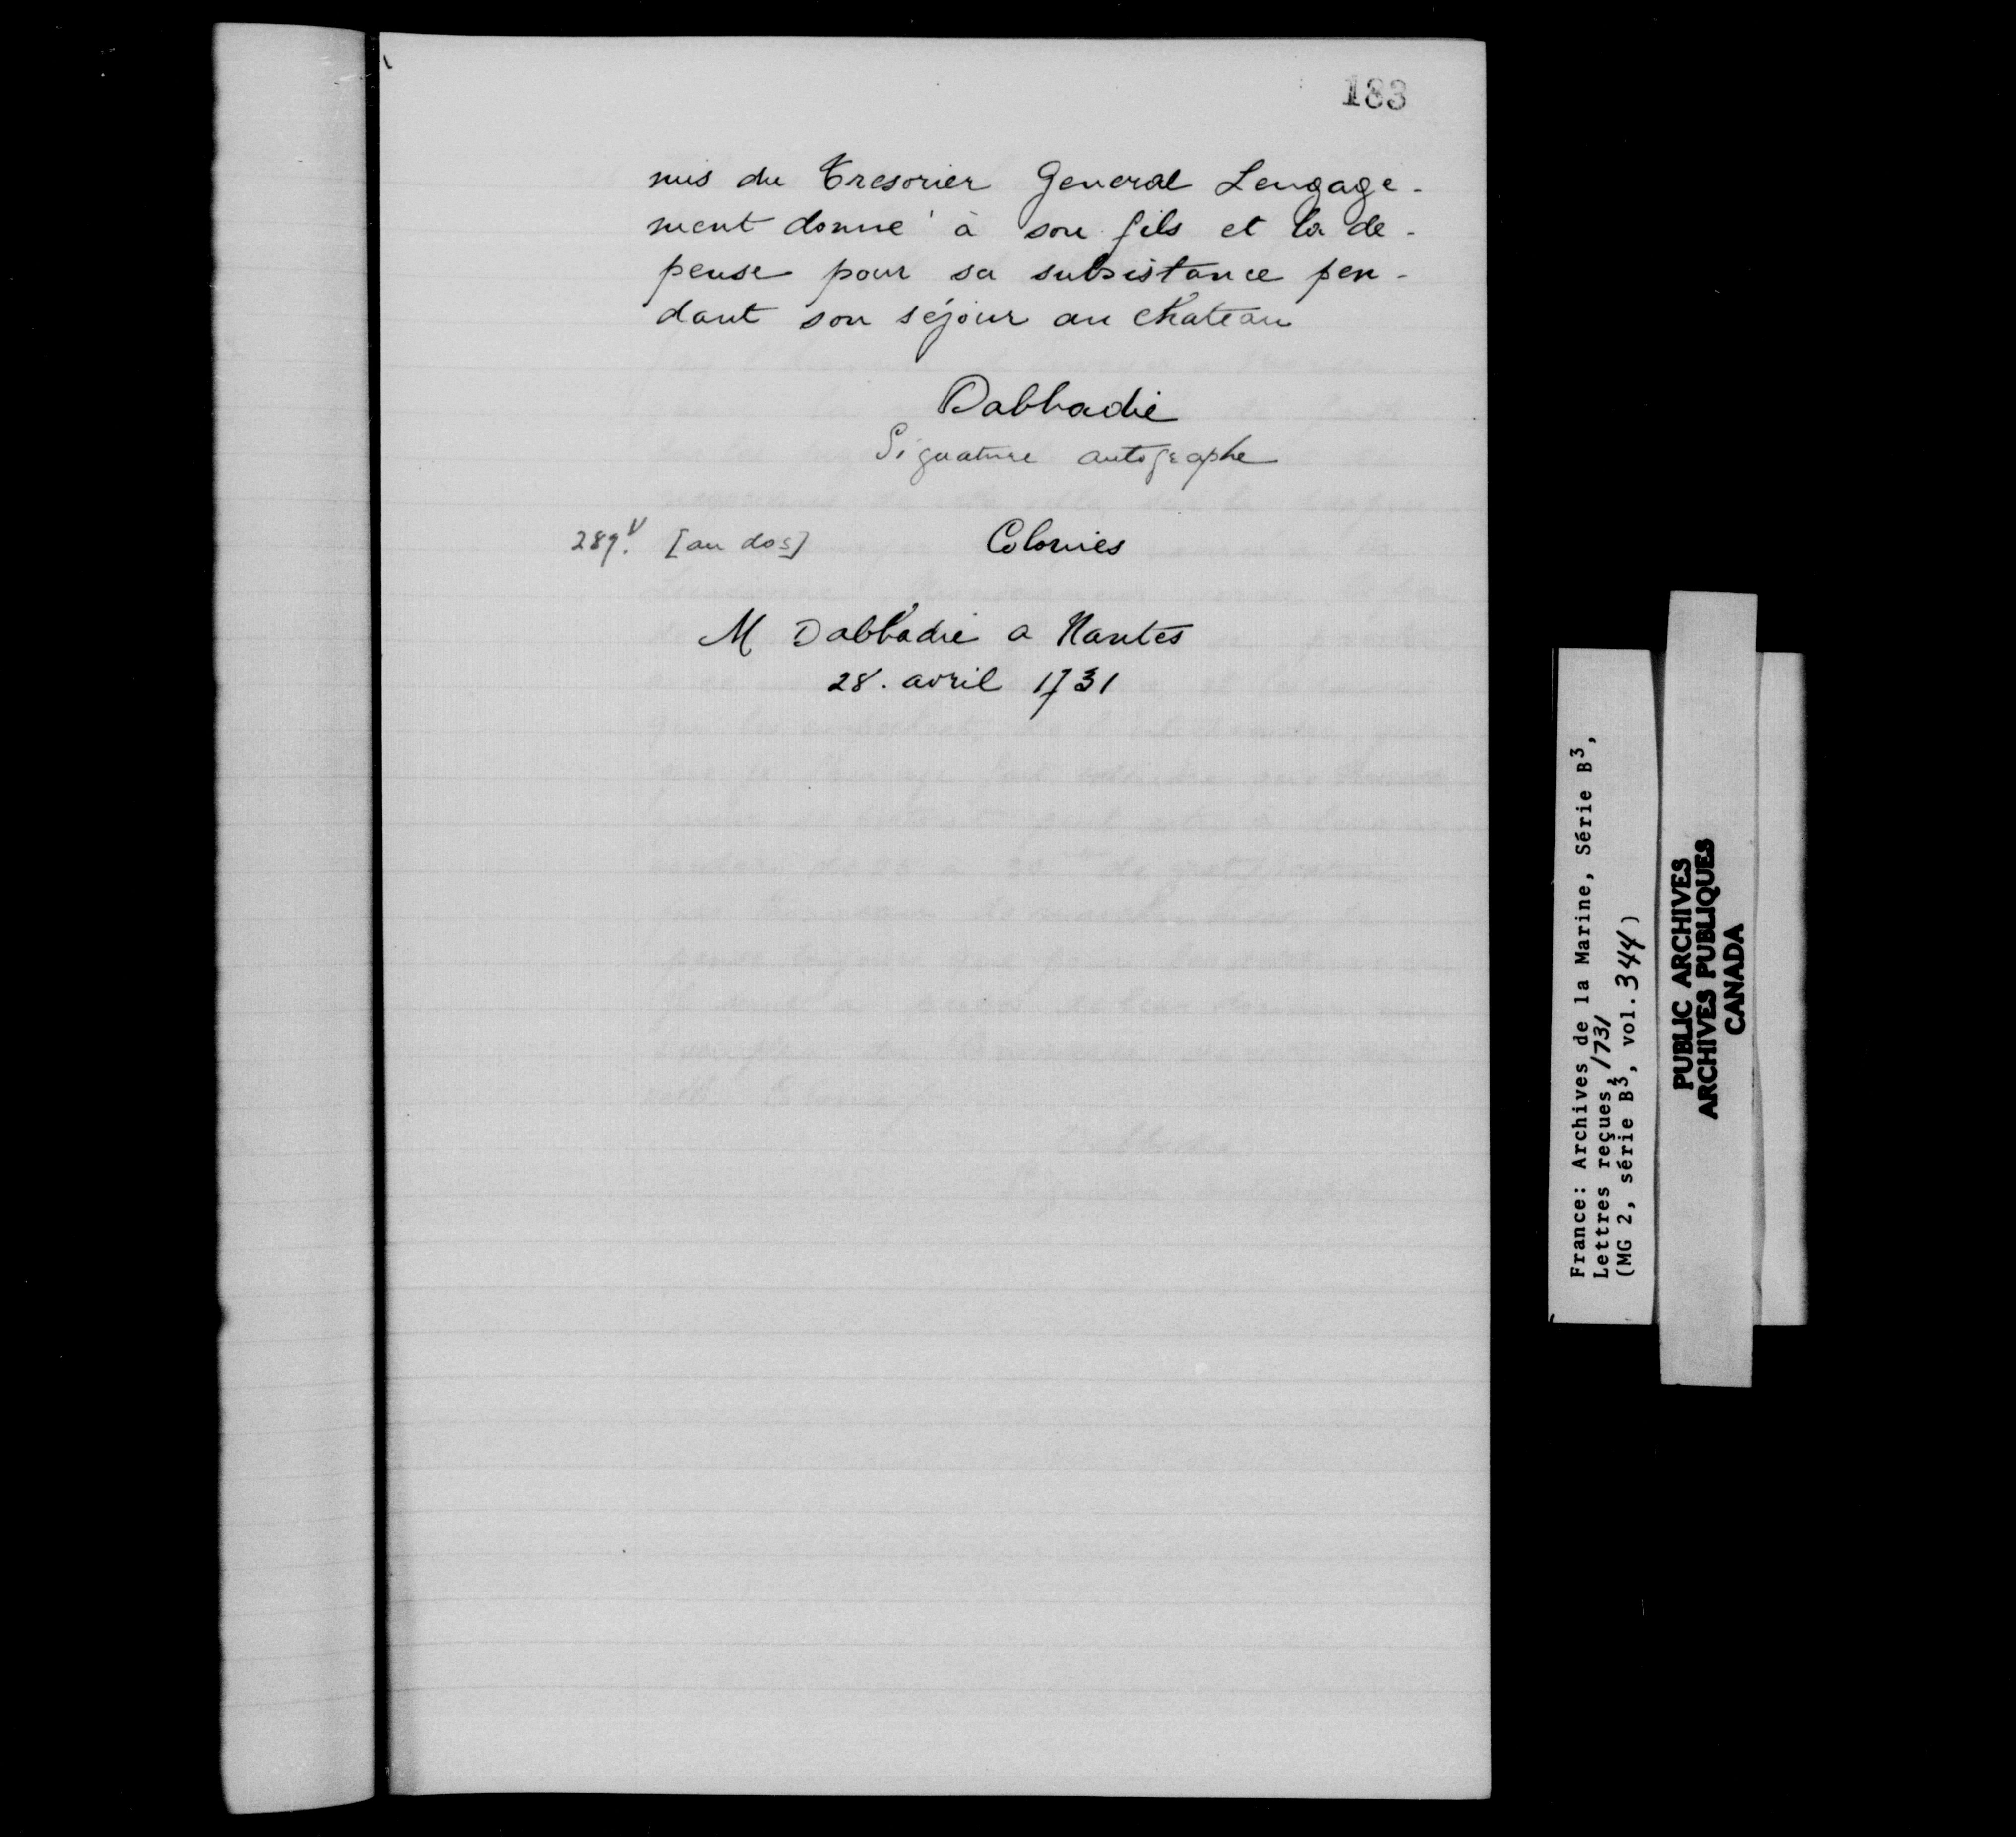 183
mis du Tresorier General Lengage-
ment donné à son fils et la de-
pense pour sa subsistance pen-
dant son séjour au Chateau
Dabbadie
Signature autographe
289.v [au dos] Colonies
M Dabbadie a Nantes
28. avril 1731
France: Archives de la Marine, Série B3,
Lettres reçues, 1731
(MG 2, série B3, vol. 344)
PUBLIC ARCHIVES
ARCHIVES PUBLIQUES
CANADA